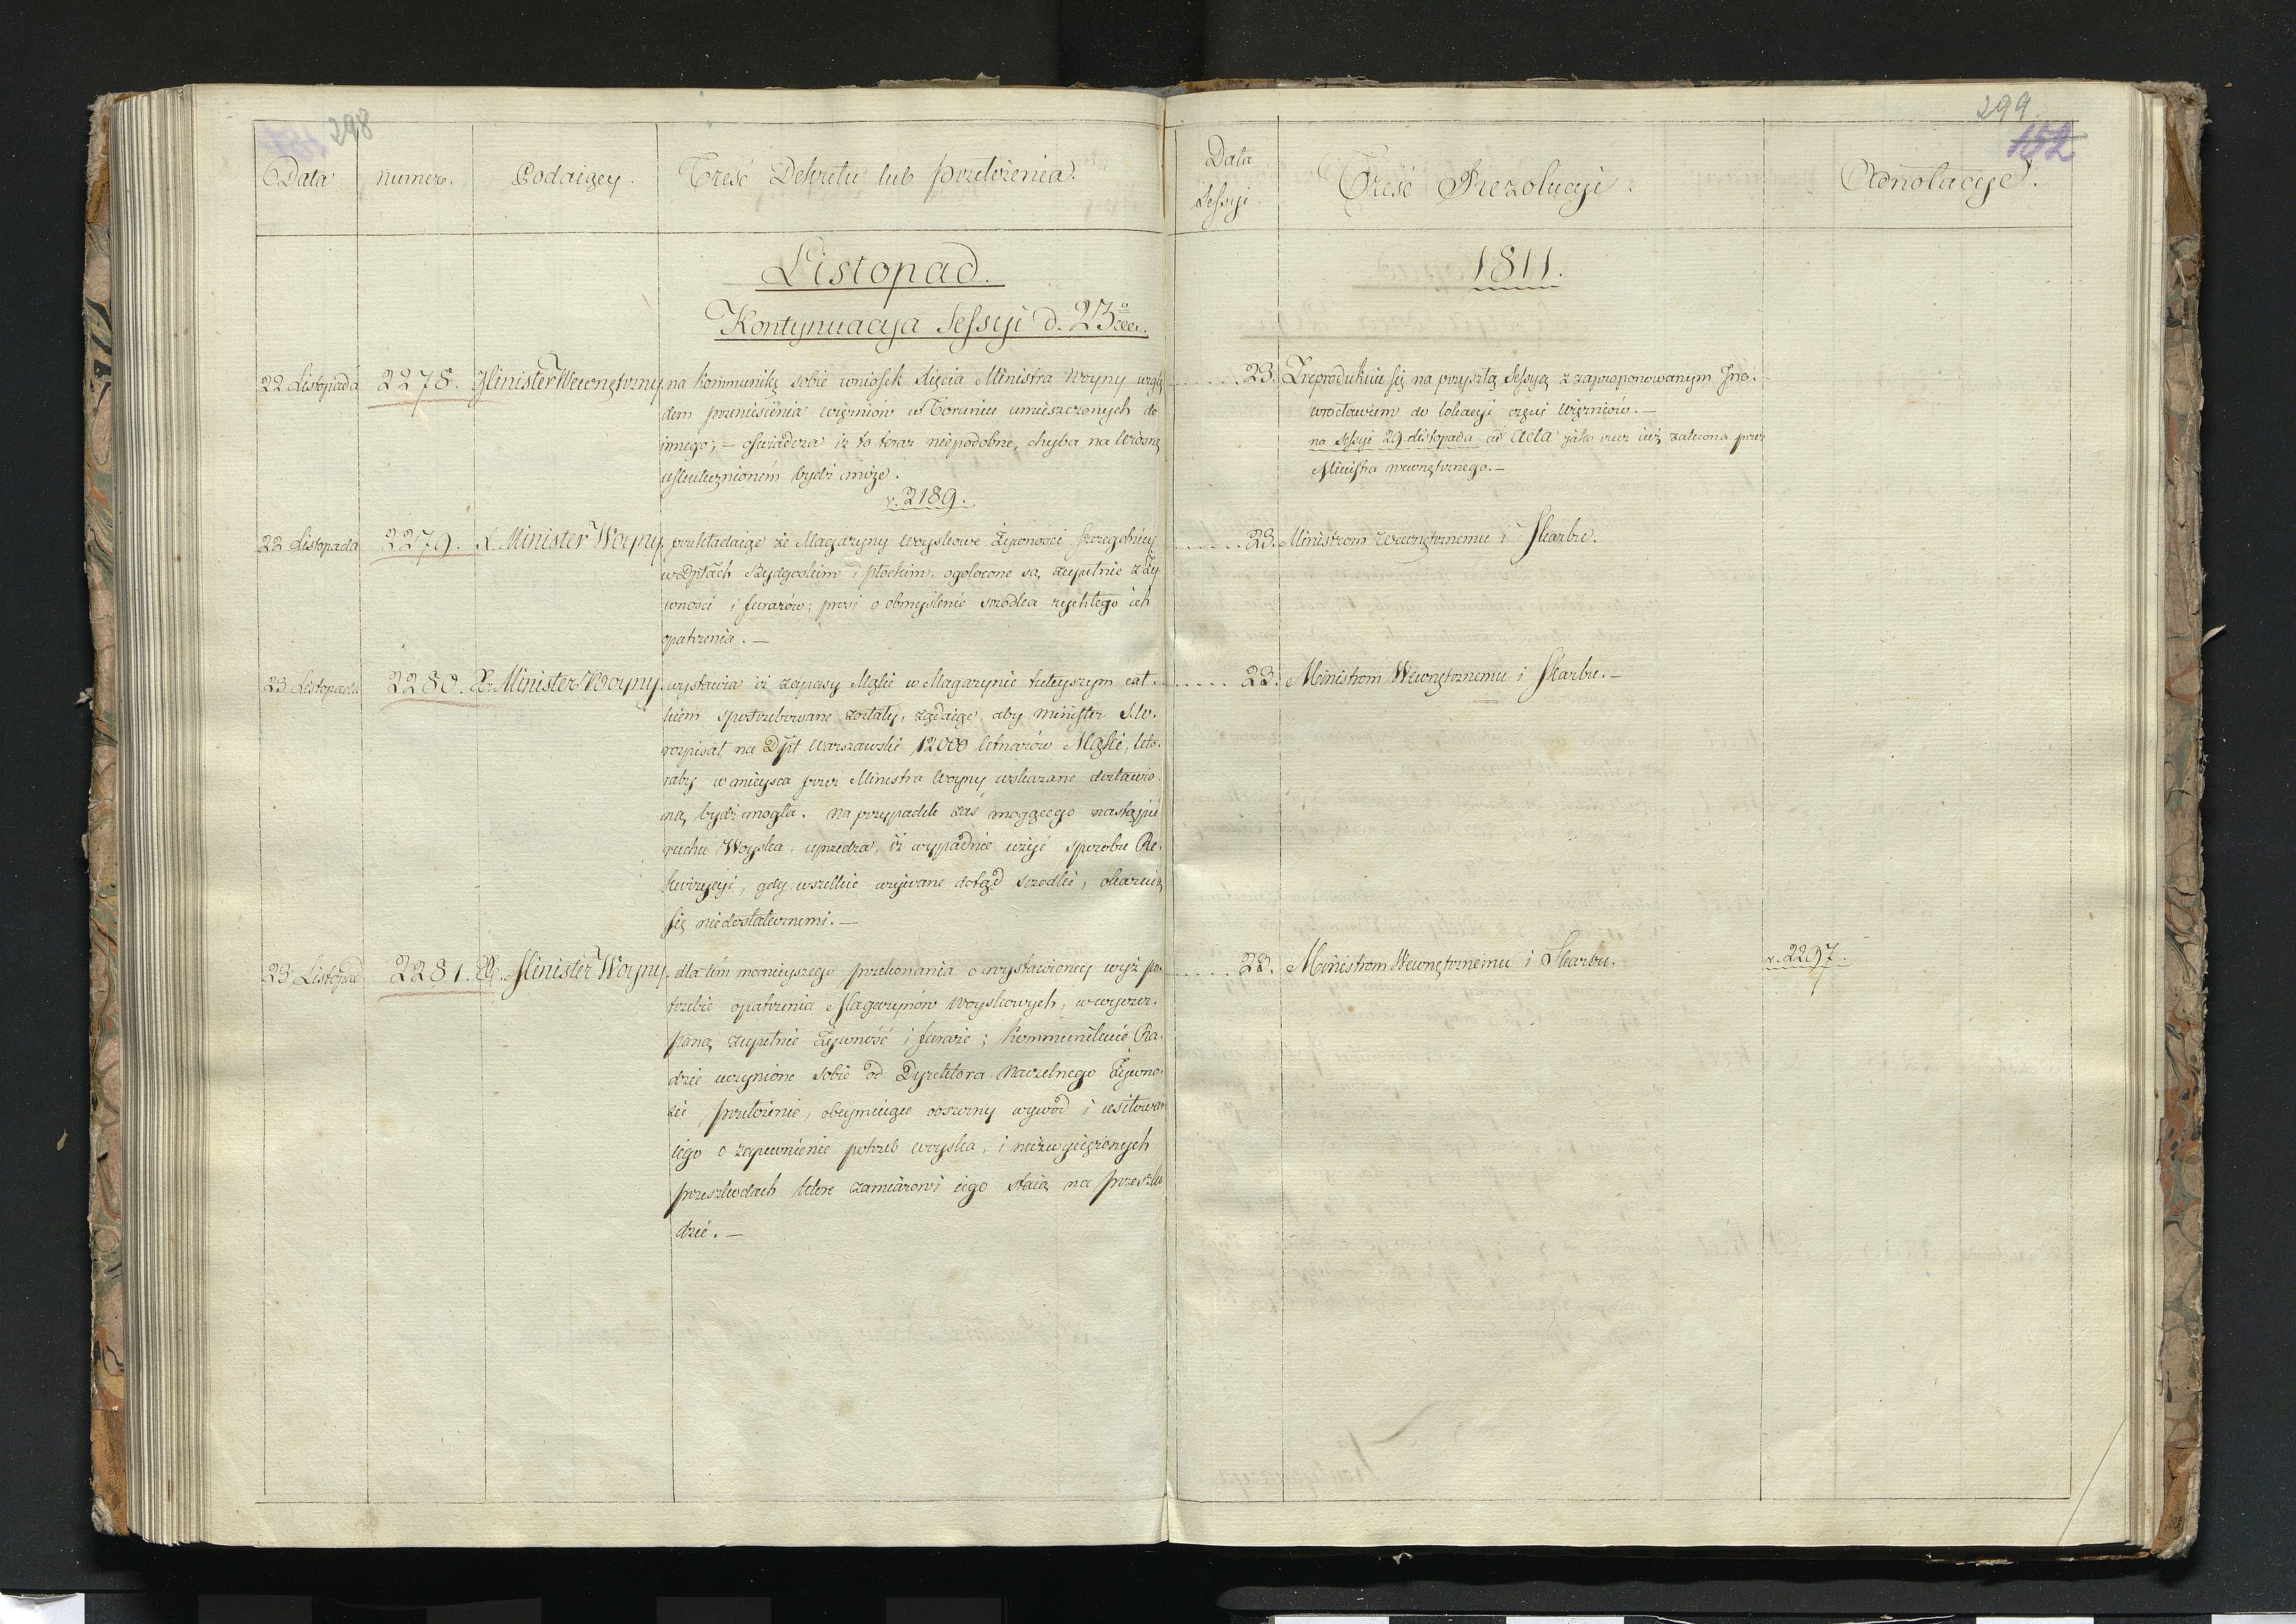 298
Data numer. Podaiący. Treść Dekretu lub przełożenia.
Listopad.
Kontynuacya Sessyi d. 23
22 Listopada 2278. Minister Wewnętrzny na kommunikę sobie wniosek Xięcia Ministra Woyny wzglę
dem przeniesienia więzniów w Toruniu umieszczonych do
innego; — oswiadcza iz to teraz niepodobne, chyba na wiosnę
uskutecznionem bydź może.
v. 2189.
22 Listopada 2279. X. Minister Woyny przekładaiąc że Magazyny woyskowe Żywności szczegolniey
w Dptach Bydgoskim i Płockim, ogołocone są zupełnie z ży
wności i furażów; prosi o obmyślenie srzodka rychłego ich
opatrzenia. —
23 Listopada 2280. X. Minister Woyny wystawia iż zapasy Mąki w Magazynie tuteyszym cał-
kiem spotrzebowane zostały, żądaiąc, aby Minister Sk.
rozpisał na Dpt Warszawski 12000 Cetnarów Mąki, któ-
raby w mieysca przez Ministra Woyny wskazane dostawio-
ną bydź mogła. na przypadek zaś mogącego nastąpić
ruchu Woyska, uprzedza, iż wypadnie użyć sposobu Re-
kwizycyi, gdy wszelkie używane dotąd srzodki, okazuią
się niedostatecznemi. —
23 Listopad 2281. X. Minister Woyny. dla tém mocnieyszego przekonania o wystawioney wyż po
trzebie opatrzenia Magazynów Woyskowych, w wyczer-
paną zupełnie Żywność i furaże; kommunikuie Ra-
dzie uczynione sobie od Dyrektora Naczelnego Żywno-
ści przełożenie, obeymuiące obszerny wywód i usiłowań
iego o zapewnienie potrzeb woyska, i niezwyciężonych
przeszkodach które zamiarowi iego staią na przeszko
dzie. —
299
152
Data Sessyi Treść Rezolucyi. Adnotacye.
1811.
23. Zreprodukuie się na przyszłą Sessyą z zaproponowanym Ino-
wrocławiem do lokacyi części Więzniów. —
na Sessyi 29 Listopada ad Acta jako rzecz iuż zalecona przez
Ministra wewnętrznego. —
23. Ministrom Wewnętrznemu i Skarbu.
23. Ministrom Wewnętrznemu i Skarbu. —
23. Ministrom Wewnętrznemu i Skarbu. v. 2297.